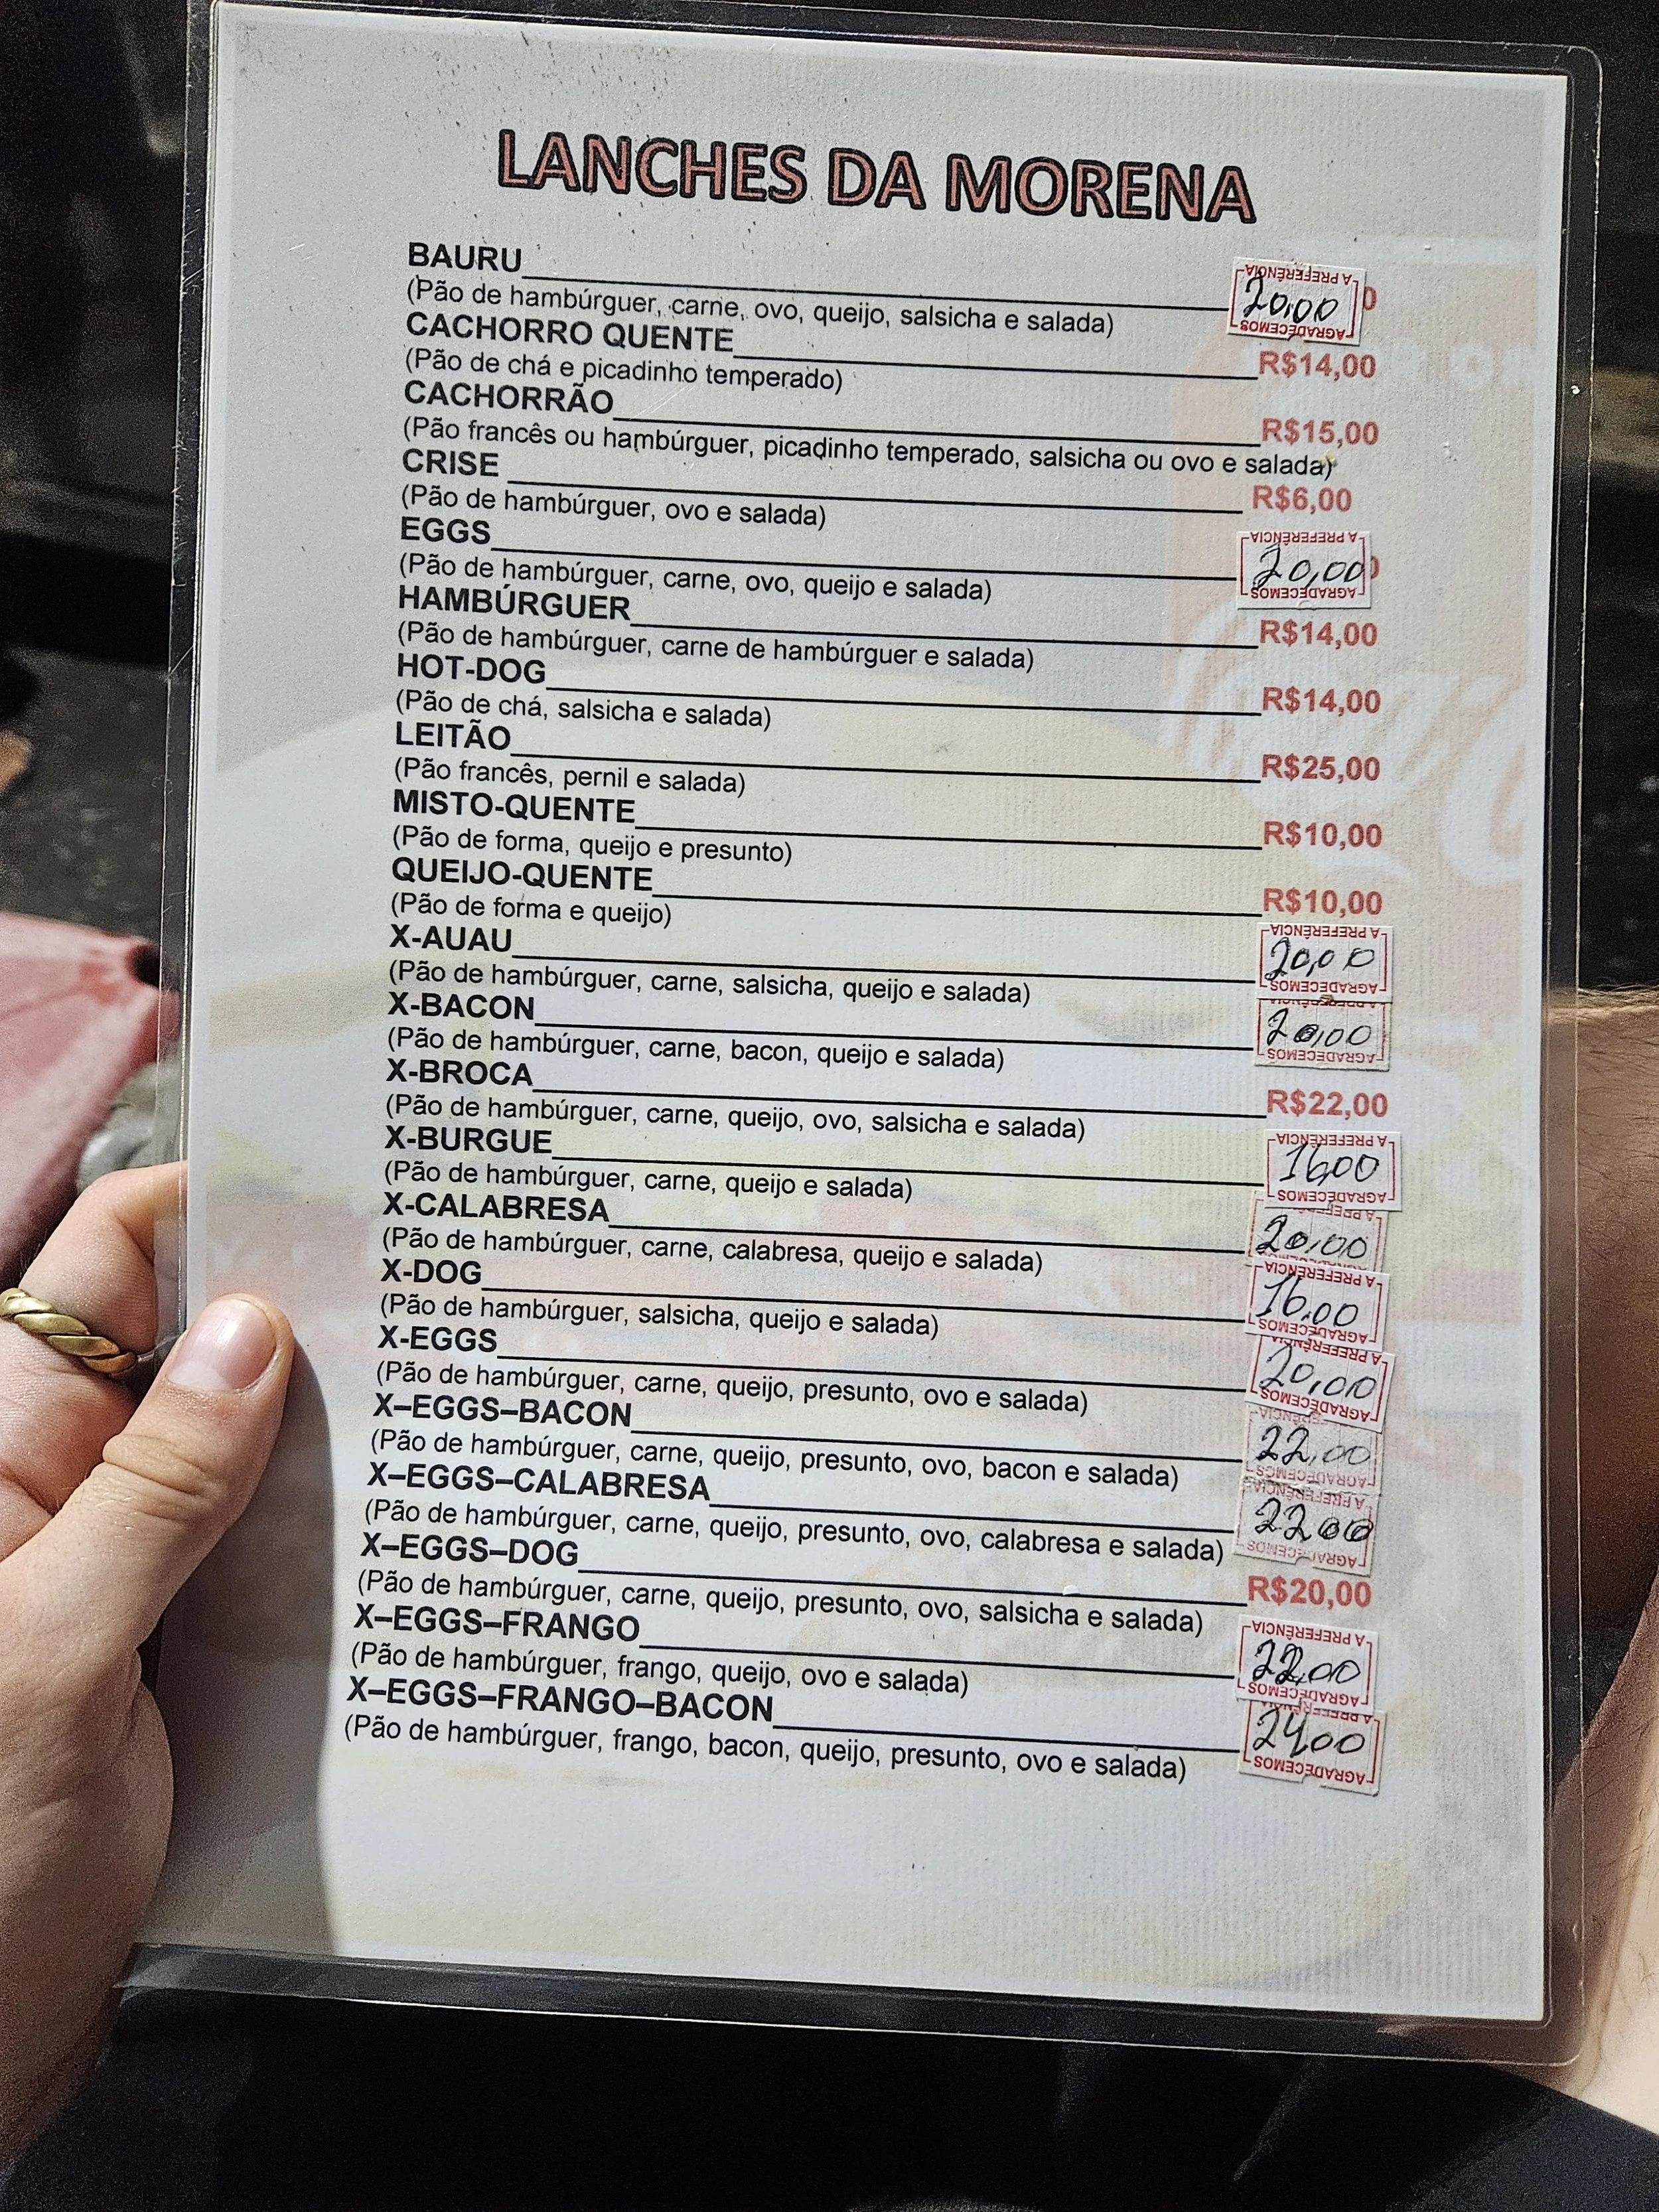 LANCHES DA MORENA
BAURU 20,00
(Pão de hambúrguer, carne, ovo, queijo, salsicha e salada)
CACHORRO QUENTE R$14,00
(Pão de chá e picadinho temperado)
CACHORRÃO R$15,00
(Pão francês ou hambúrguer, picadinho temperado, salsicha ou ovo e salada)
CRISE R$6,00
(Pão de hambúrguer, ovo e salada)
EGGS 20,00
(Pão de hambúrguer, carne, ovo, queijo e salada)
HAMBÚRGUER R$14,00
(Pão de hambúrguer, carne de hambúrguer e salada)
HOT-DOG R$14,00
(Pão de chá, salsicha e salada)
LEITÃO R$25,00
(Pão francês, pernil e salada)
MISTO-QUENTE R$10,00
(Pão de forma, queijo e presunto)
QUEIJO-QUENTE R$10,00
(Pão de forma e queijo)
X-AUAU 20,00
(Pão de hambúrguer, carne, salsicha, queijo e salada)
X-BACON 20,00
(Pão de hambúrguer, carne, bacon, queijo e salada)
X-BROCA R$22,00
(Pão de hambúrguer, carne, queijo, ovo, salsicha e salada)
X-BURGUE 16,00
(Pão de hambúrguer, carne, queijo e salada)
X-CALABRESA 20,00
(Pão de hambúrguer, carne, calabresa, queijo e salada)
X-DOG 16,00
(Pão de hambúrguer, salsicha, queijo e salada)
X-EGGS 20,00
(Pão de hambúrguer, carne, queijo, presunto, ovo e salada)
X–EGGS–BACON 22,00
(Pão de hambúrguer, carne, queijo, presunto, ovo, bacon e salada)
X–EGGS–CALABRESA 22,00
(Pão de hambúrguer, carne, queijo, presunto, ovo, calabresa e salada)
X–EGGS–DOG R$20,00
(Pão de hambúrguer, carne, queijo, presunto, ovo, salsicha e salada)
X–EGGS–FRANGO 22,00
(Pão de hambúrguer, frango, queijo, ovo e salada)
X–EGGS–FRANGO–BACON 24,00
(Pão de hambúrguer, frango, bacon, queijo, presunto, ovo e salada)